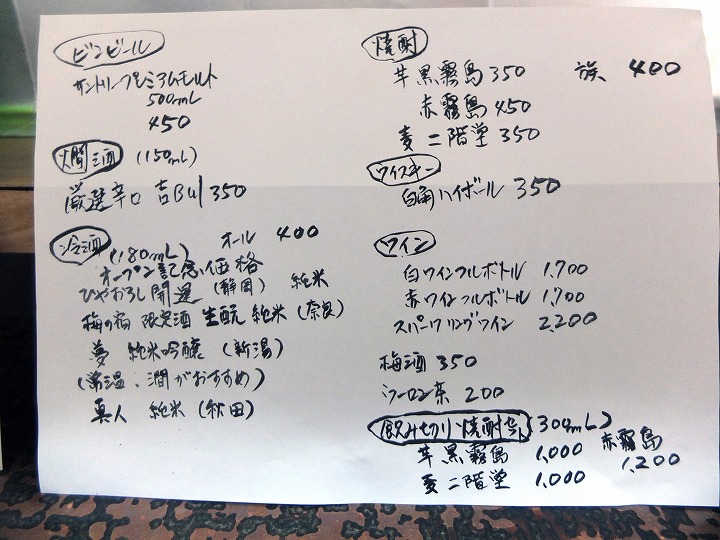 ビンビール
サントリープレミアムモルト
500mL
450
燗酒 (150mL)
厳選辛口 350
冷酒 (180mL) オール 400
オープン記念価格
ひやおろし 開運 (静岡) 純米
梅の宿 限定酒 生酛 純米 (奈良)
夢 純米吟醸 (新潟)
(常温、燗がおすすめ)
真人 純米 (秋田)
焼酎
芋 黒霧島 350
400
赤霧島 450
麦 二階堂 350
ウイスキー
白角ハイボール 350
ワイン
白ワインフルボトル 1,700
赤ワインフルボトル 1,700
スパークリングワイン 2,200
梅酒 350
ウーロン茶 200
飲み切り焼酎セット (300mL)
芋 黒霧島 1,000
赤霧島 1,200
麦 二階堂 1,000